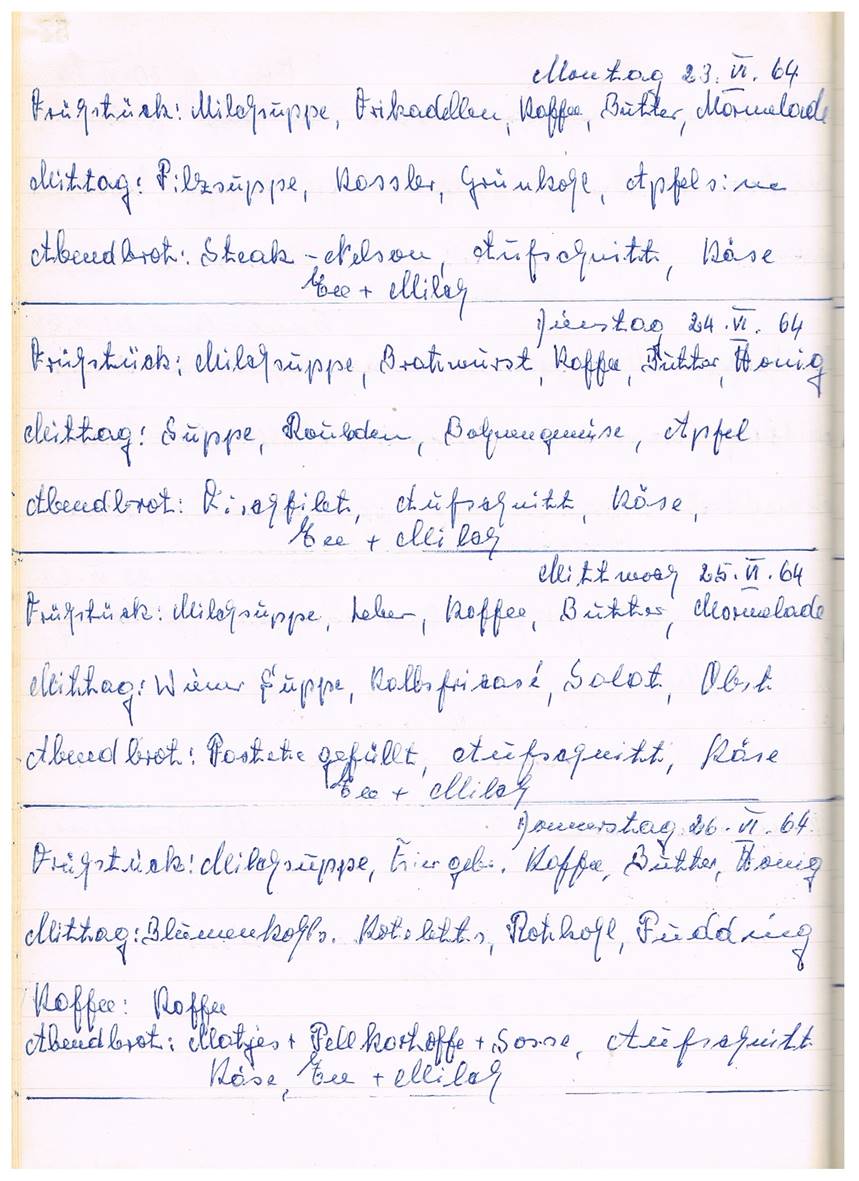 Montag 23. VI. 64
Frühstück: Milchsuppe, Frikadellen, Kaffee, Butter, Marmelade
Mittag: Pilzsuppe, Kassler, Grünkohl, Apfelsine
Abendbrot: Steak - Nelson, Aufschnitt, Käse
Tee + Milch
Dienstag 24. VI. 64
Frühstück: Milchsuppe, Bratwurst, Kaffee, Butter, Honig
Mittag: Suppe, Rouladen, Bohnengemüse, Apfel
Abendbrot: Fischfilet, Aufschnitt, Käse,
Tee + Milch
Mittwoch 25. VI. 64
Frühstück: Milchsuppe, Leber, Kaffee, Butter, Marmelade
Mittag: Wiener Suppe, Kalbsfricasé, Salat, Obst
Abendbrot: Pastete gefüllt, Aufschnitt, Käse
Tee + Milch
Donnerstag 26. VI. 64.
Frühstück: Milchsuppe, Eier geb., Kaffee, Butter, Honig
Mittag: Blumenkohls. Koteletts, Rotkohl, Pudding
Kaffee: Kaffee
Abendbrot: Matjes + Pellkartoffe + Sosse, Aufschnitt
Käse, Tee + Milch